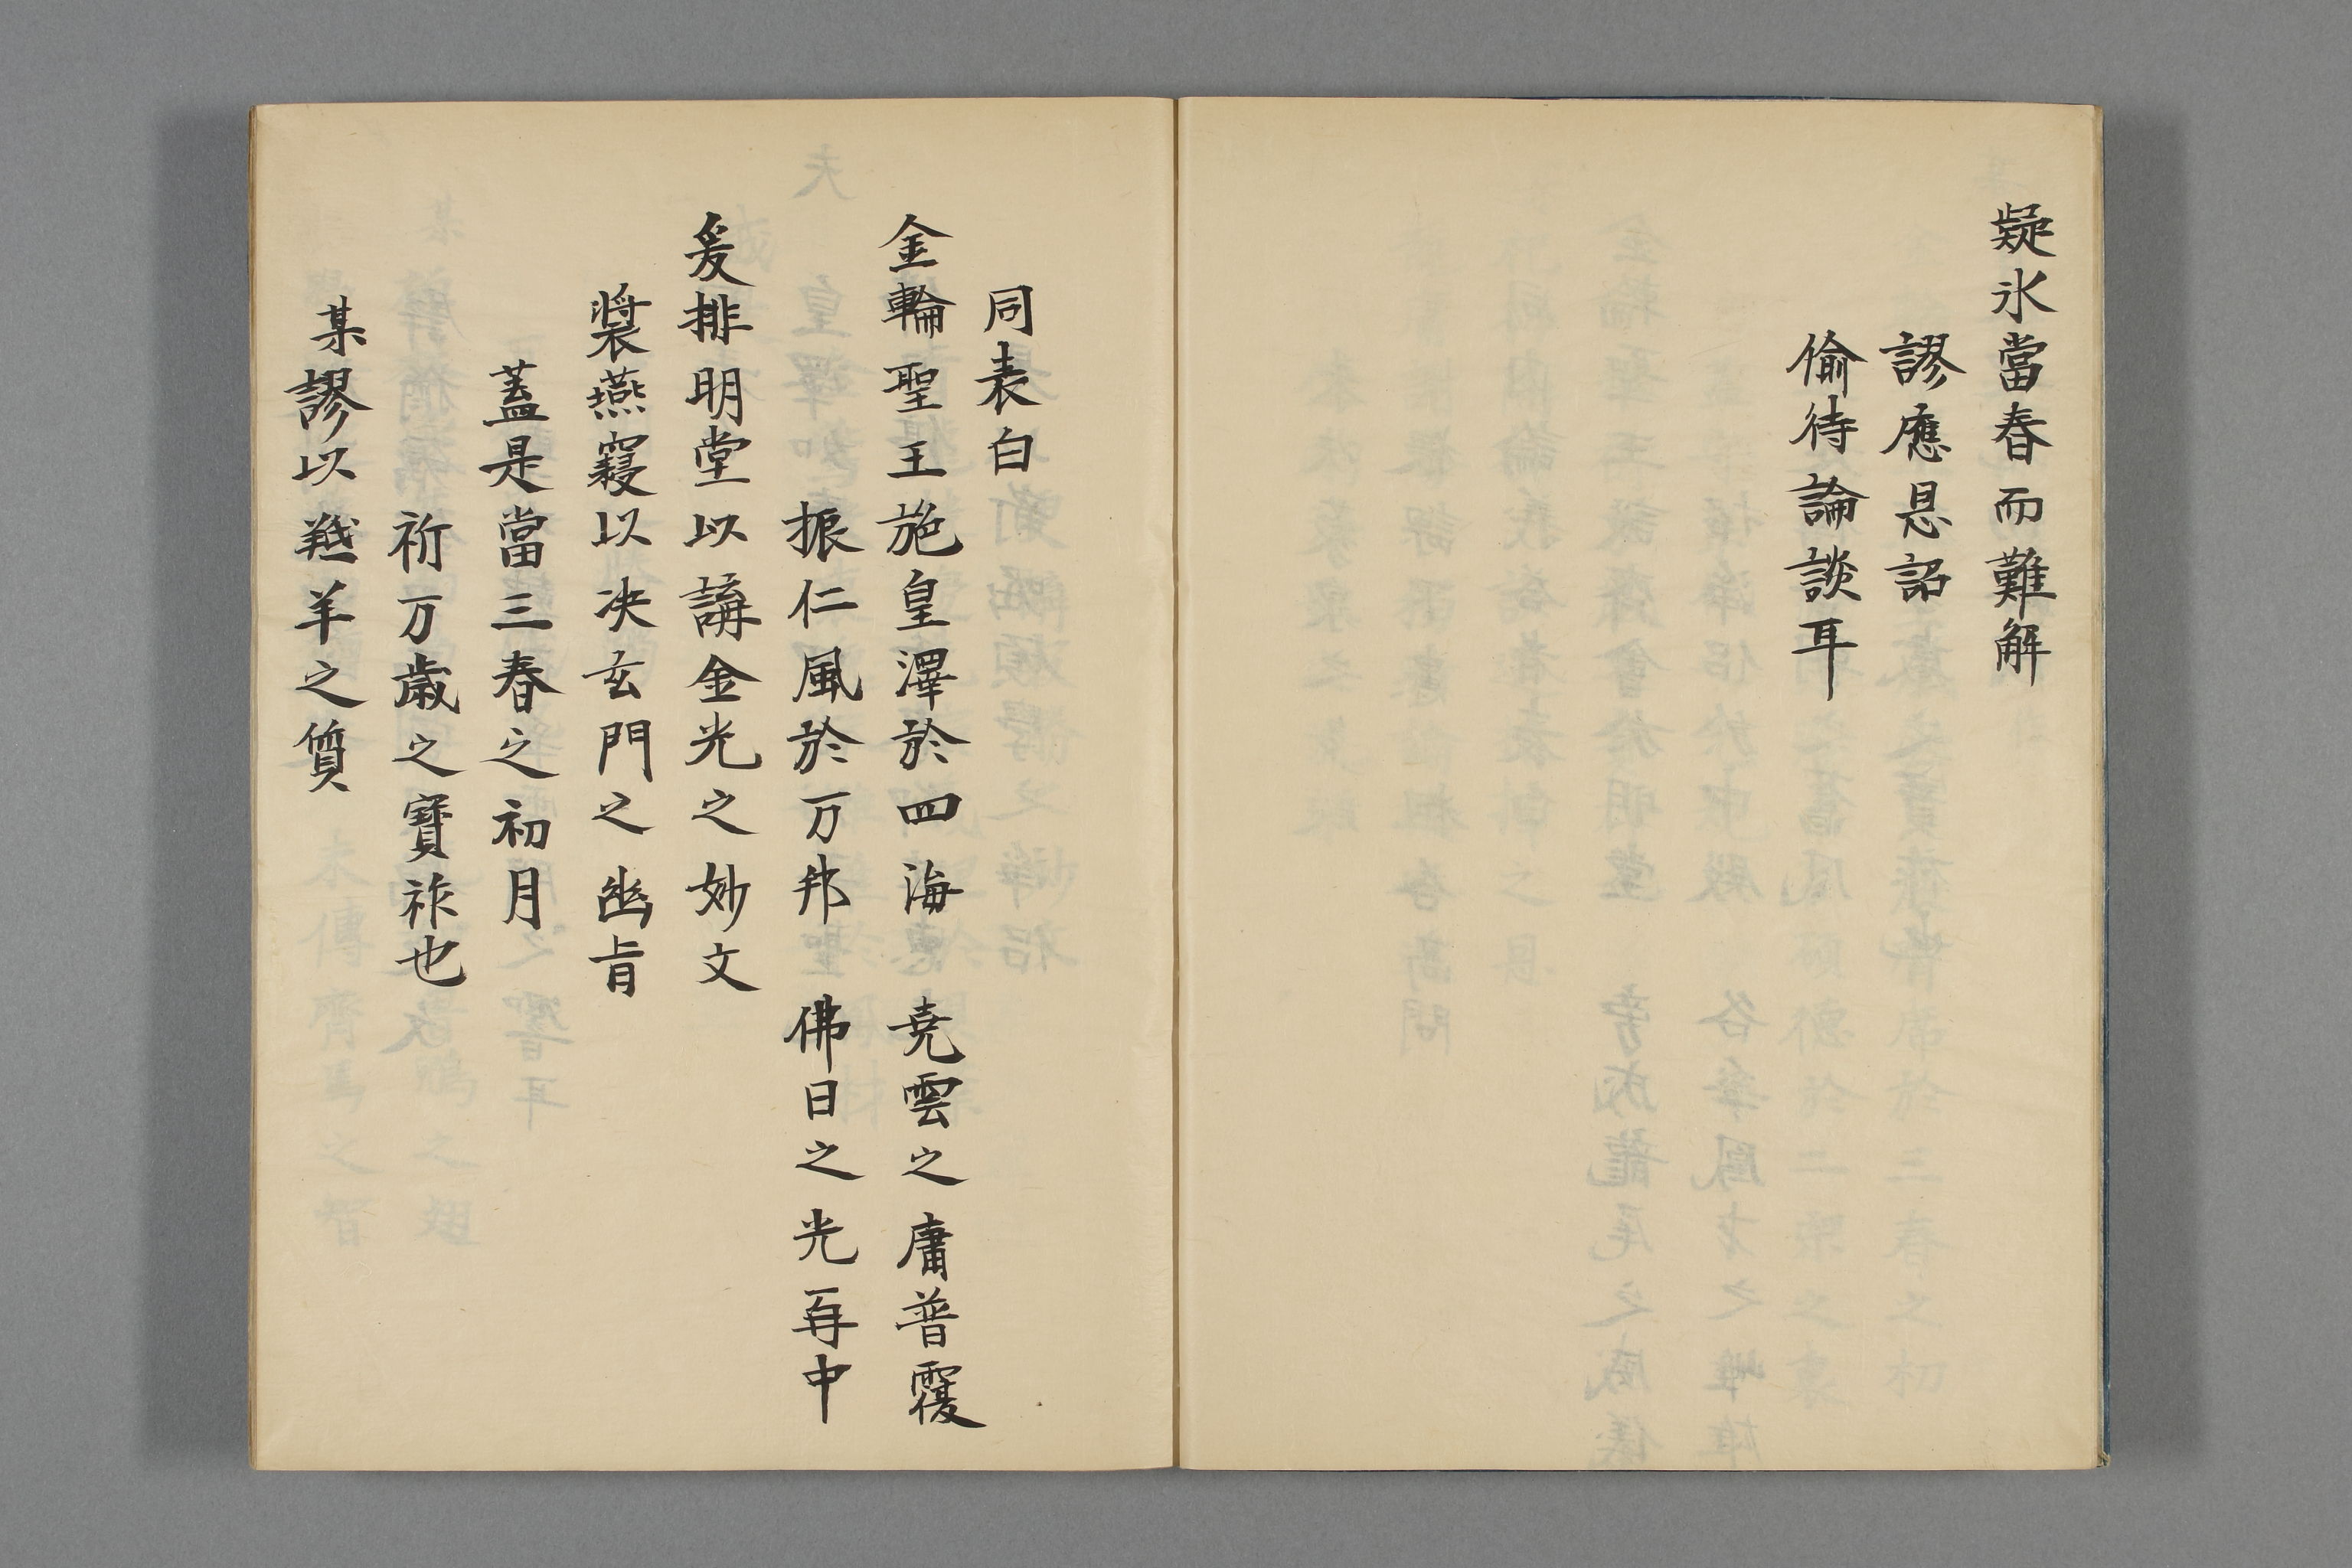 疑氷當春而難解
謬應恩詔
偷待論談耳
同表白
金輪聖王施皇澤於四海堯雲之膚普覆
振仁風於万邦佛日之光再中
爰排明堂以講金光之妙文
製燕寢以决玄門之幽旨
蓋是當三春之初月
祈万歳之寶祚也
某謬以羝羊之質